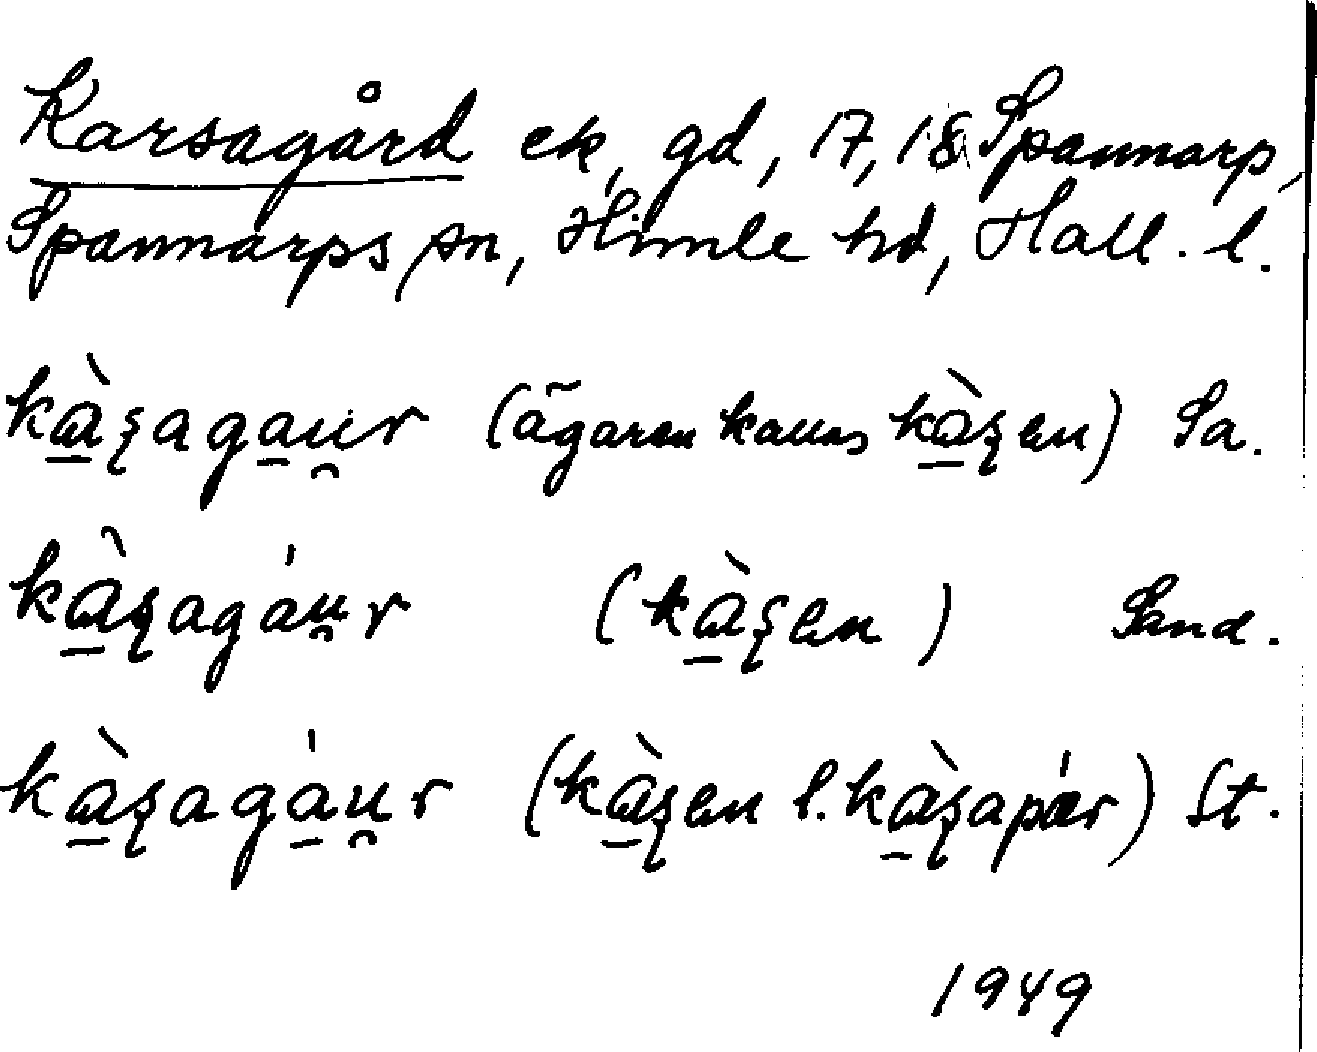 Karsagård ek, gd, 17, 18 Spannarp,
Spannarps sn, Himle hd, Hall. l.
kà̱ʂaga̱u̯r (ägaren kallas kà̱ʂen) Sa.
kà̱ʂagáu̯r (kà̱ʂen) Sand.
kà̱ʂagá̱u̯r (kà̱ʂen l. kà̱ʂapár) St.
1949